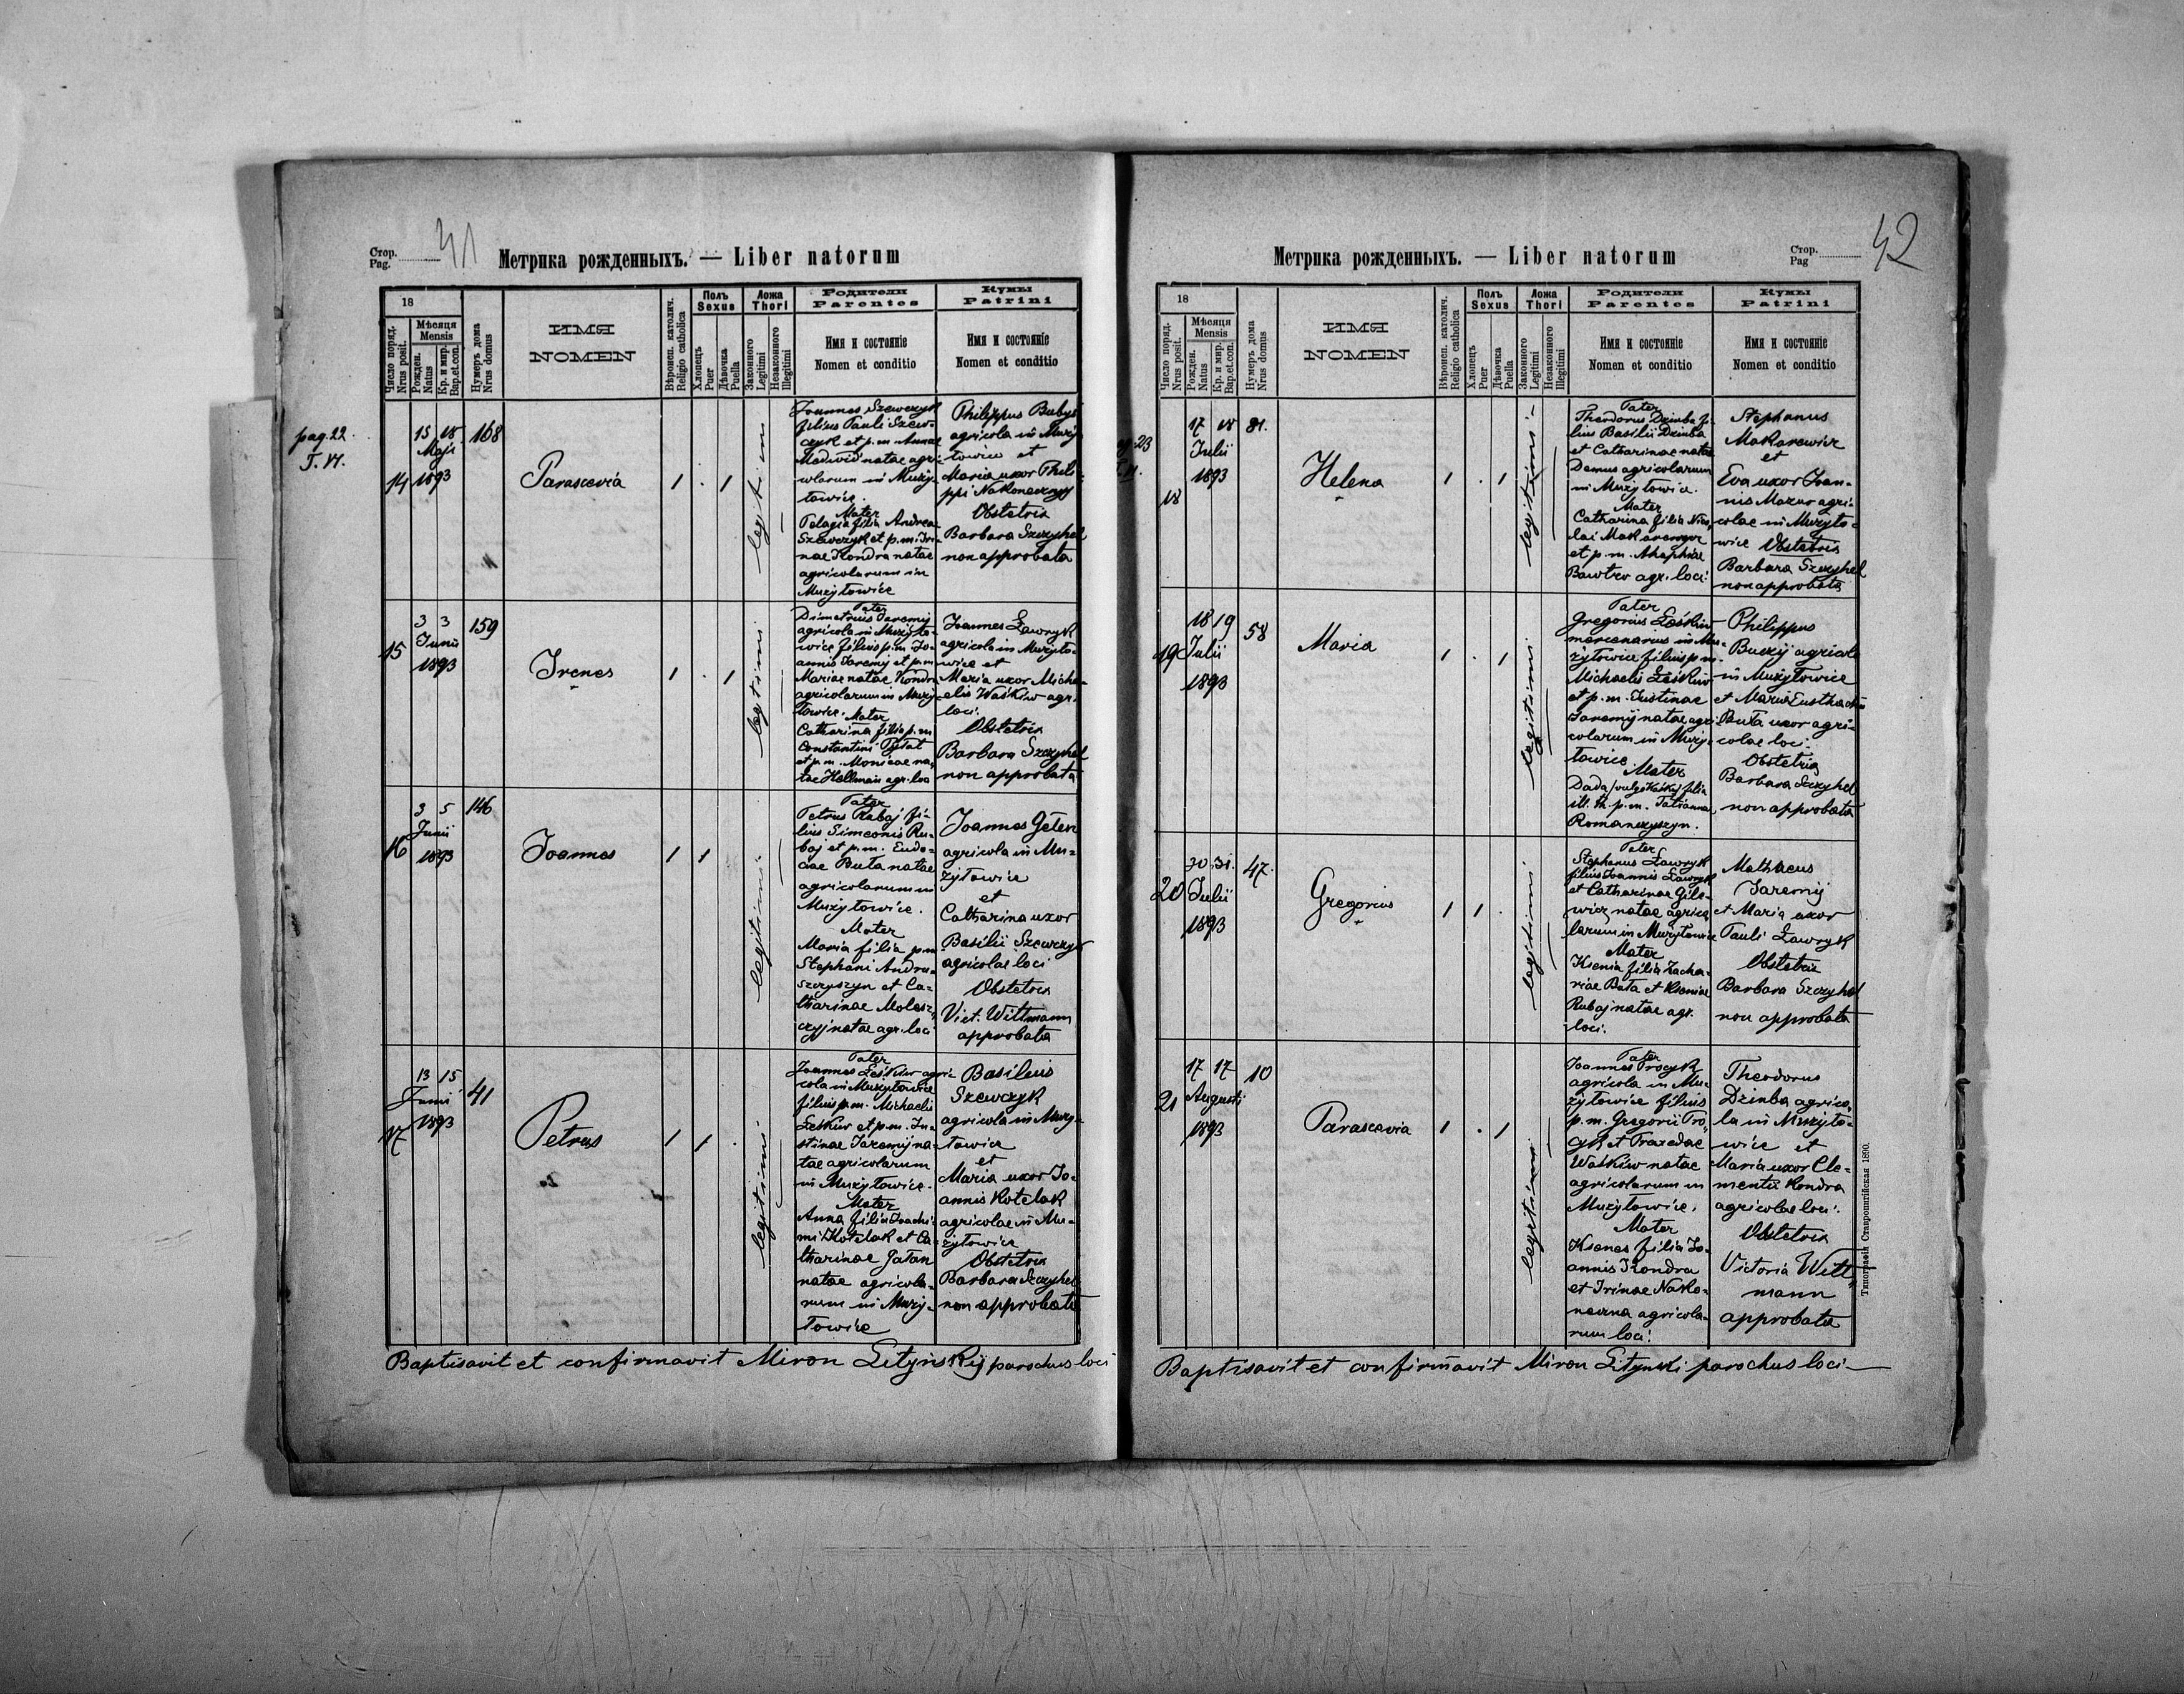 Стор.
Pag.
41
Метрика рожденныхъ. — Liber natorum
18
Число поряд.
Nrus posit.
Мѣсяця
Mensis
Рожден.
Natus
Кр. и мир.
Bap.et.con.
Нумеръ дома
Nrus domus
ИМЯ
NOMEN
Вѣроисп. католич.
Religio catholica
Полъ
Sexus
Хлопецъ
Puer
Дѣвочка
Puella
Ложа
Thori
Законного
Legitimi
Незаконного
Illegitimi
Родители
Parentes
Имя и состоянie
Nomen et conditio
Кумы
Patrini
Имя и состоянie
Nomen et conditio
pag. 22.
T. VI.
14
15 18
Maji
1893
168
Parascevia
1 . 1
legitimi
Joannes Szewczyk
filius Pauli Szew-
czyk et p.m. Annae
Medwid natae agri-
colarum in Muży-
towice.
Mater
Pelagia filia Andreae
Szewczyk et p.m. Iri-
nae Kondra natae
agricolarum in
Mużytowice
Philippus Babyj
agricola in Muży-
towice et
Maria uxor Phili-
ppi Nakoneczny
Obstetrix
Barbara Szczyhel
non approbata
15
3 3
Junii
1893
159
Irenes
1 . 1
legitimi
Pater
Dimetrius Jaremij
agricola in Mużyto-
wice filius p.m. Jo-
annis Jaremij et p.m.
Mariae natae Kondra
agricolarum in Muży-
towice. Mater
Catharina filia p.m.
Constantini Pytat
et p.m. Monicae na-
tae Hellman agr. loci
Joannes Ławryk
agricola in Mużyto-
wice et
Maria uxor Micha-
elis Waśkiw agr.
loci.
Obstetrix
Barbara Szczyhel
non approbata
16
3 5
Junii
1893
146
Joannes
1 1
legitimi
Pater
Petrus Rubaj fi-
lius Simeonis Ru-
baj et p.m. Eudo-
ciae Buta natae
agricolarum in
Mużytowice.
Mater
Maria filia p.m.
Stephani Andru-
szczyszyn et Ca-
tharinae Molesz-
czyj natae agr. loci
Joannes Geten
agricola in Mu-
żytowice
et
Catharina uxor
Basilii Szewczyk
agricolae loci
Obstetrix
Vict. Wittmann
approbata
17
13 15
Junii
1893
41
Petrus
1 1 .
legitimi
Pater
Joannes Leśkiw agri-
cola in Mużytowice
filius p.m. Michaelis
Leśkiw et p.m. Ju-
stinae Jaremij na-
tae agricolarum
in Mużytowice.
Mater
Anna filia Joachi-
mi Kotelak et Ca-
tharinae Jatan
natae agricola-
rum in Muży-
towice
Basilius
Szewczyk
agricola in Muży-
towice
et
Maria uxor Jo-
annis Kotelak
agricolae in Mu-
żytowice
Obstetrix
Barbara Szczyhel
non approbata
Baptisavit et confirmavit Miron Lityńskij parochus loci
Метрика рожденныхъ. — Liber natorum
Стор.
Pag
42
18
Число поряд.
Nrus posit.
Мѣсяця
Mensis
Рожден.
Natus
Кр. и мир.
Bap.et.con.
Нумеръ дома
Nrus domus
ИМЯ
NOMEN
Вѣроисп. католич.
Religio catholica
Полъ
Sexus
Хлопецъ
Puer
Дѣвочка
Puella
Ложа
Thori
Законного
Legitimi
Незаконного
Illegitimi
Родители
Parentes
Имя и состоянie
Nomen et conditio
Кумы
Patrini
Имя и состоянie
Nomen et conditio
23
18
17 18
Julii
1893
81.
Helena
1 . 1
legitimi
Pater
Theodorus Dziuba fi-
lius Basilii Dziuba
et Catharinae natae
Demus agricolarum
in Mużytowice.
Mater
Catharina filia Nico-
lai Makarewycz
et p.m. Ahaphiae
Bawtro agr. loci.
Stephanus
Makarewicz
et
Eva uxor Joan-
nis Mazur agri-
colae in Mużyto-
wice Obstetrix
Barbara Szczyhel
non approbata
19
18 19
Julii
1893
58
Maria
1 . 1
legitimi
Pater
Gregorius Leśkiw
mercenarius in Mu-
żytowice filius p.m.
Michaelis Leśkiw
et p.m. Justinae
Jaremij natae agri-
colarum in Muży-
towice.
Mater
filia
ill. th. p.m. Tatianna
Romanczyszyn.
Philippus
Buczij agricola
in Mużytowice
et Maria Eusthachii
Buta uxor agri-
colae loci.
Obstetrix
Barbara Szczyhel
non approbata
20
30 31.
Julii
1893
47.
Gregorius
1 1 .
legitimi
Pater
Stephanus Ławryk
filius Joannis Ławryk
et Catharinae Gile-
wicz natae agrico-
larum in Mużytowice
Mater
Ksenia filia Zacha-
riae Buta et Kseniae
Rubaj natae agr.
loci.
Mathaeus
Jaremij
et Maria uxor
Pauli Ławryk
Obstetrix
Barbara Szczyhel
non approbata
21
17 17
Augusti
1893
10
Parascevia
1 . 1
legitimi
Pater
Joannes Procyk
agricola in Mu-
żytowice filius
p.m. Gregorii Pro-
cyk et Praxedae
Waśkiw natae
agricolarum in
Mużytowice.
Mater
Ksenes filia Jo-
annis Kondra
et Irinae Nako-
neczna agricola-
rum loci.
Theodorus
Dziuba agrico-
la in Mużyto-
wice et
Maria uxor Cle-
mentii Kondra
agricolae loci.
Obstetrix
Victoria Witt-
mann
approbata
Baptisavit et confirmavit Miron Litynski parochus loci
Типографія Ставропигійская 1890.